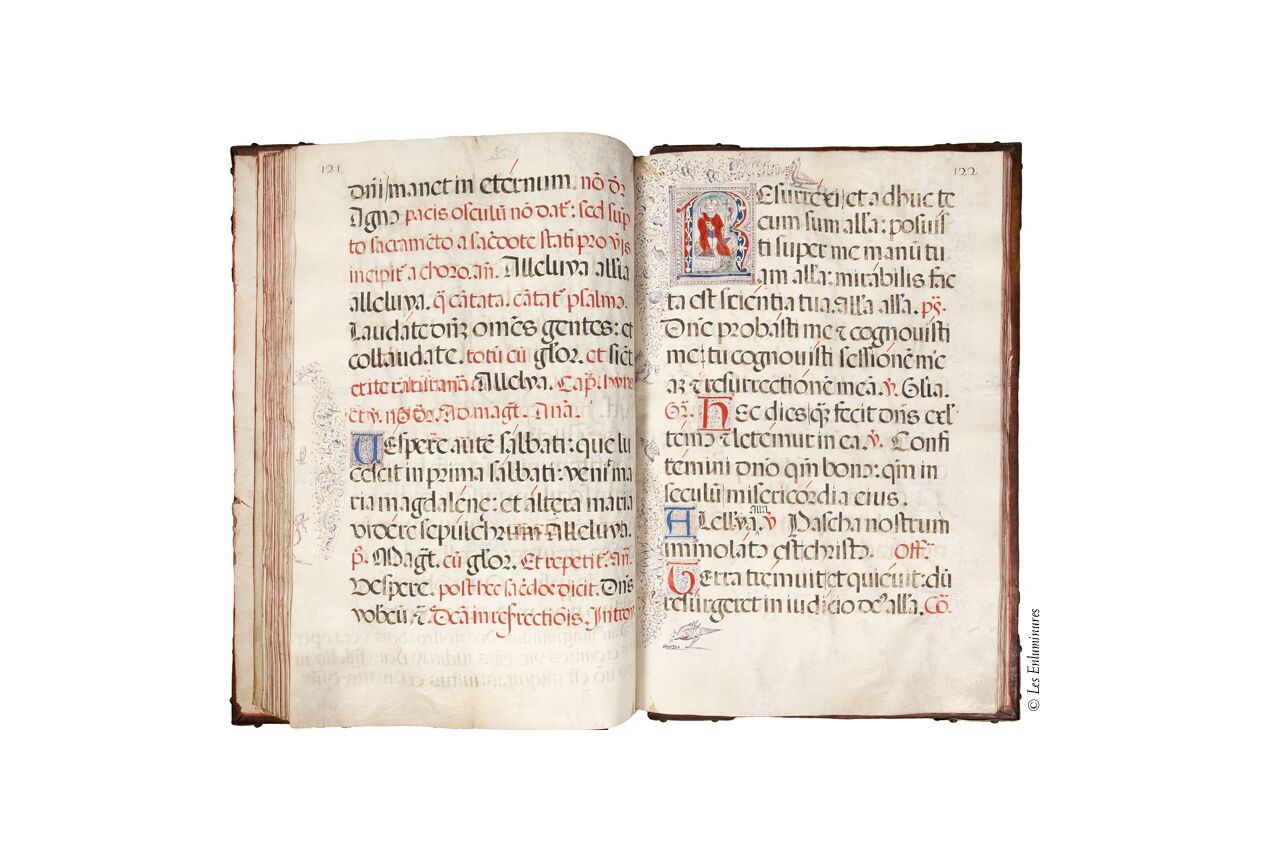 121
dn̄i manet in etérnum. nō dr̄
Agnꝰ pacis osculū nō dat̄: sed sup
to sacramēto a sac̄dote stati pro
incipit̄ a choro. añ. Alleluya allia
alleluya. q̄ cātata. cātat̄ psalmꝰ.
Laudáte dn̄ȝ omēs gentes: et
collaudate. totū cū glor̄. et sic̄
añā. Allelya. Cap̄.
et v̄. nō dr̄. Ad magt̄. Anā.
Uespere autē sabbati: que lu
cescit in prima sábbati: venit ma
ria magdaléne: et áltera maria
videre sepulchrum Alleluya.
p̄. Magt̄. cū glor̄. Et repetit̄. añ.
Vespere. post hec sac̄doc dicit. Dn̄s
vobcū. ⁊. Dcā in refrectiōis. Introy
122
Resurréxi et adhuc te
cum sum alla: posuis
ti super me manū tu
am alla: mirábilis fac
ta est scientia tua. alla alla. pš.
Dn̄e probásti me ⁊ cognouísti
me: tu cognouísti sessionē me
aȝ ⁊ resurrectionē meā. v̄. Glia.
Gr̄. Hec dies q̄ȝ fecit dn̄s exl
temꝰ ⁊ letemur in ea. v̄. Confi
temini dn̄o qm̄ bonꝰ: qm̄ in
seculū misericórdia eius.
Alell'ya. v̄ Pascha nostrum
immolatꝰ est christꝰ. Off̄.
Terra tremuit et quiéuit: dū
resúrgeret in iudício deꝰ alla. Cō.
© Les Enluminures